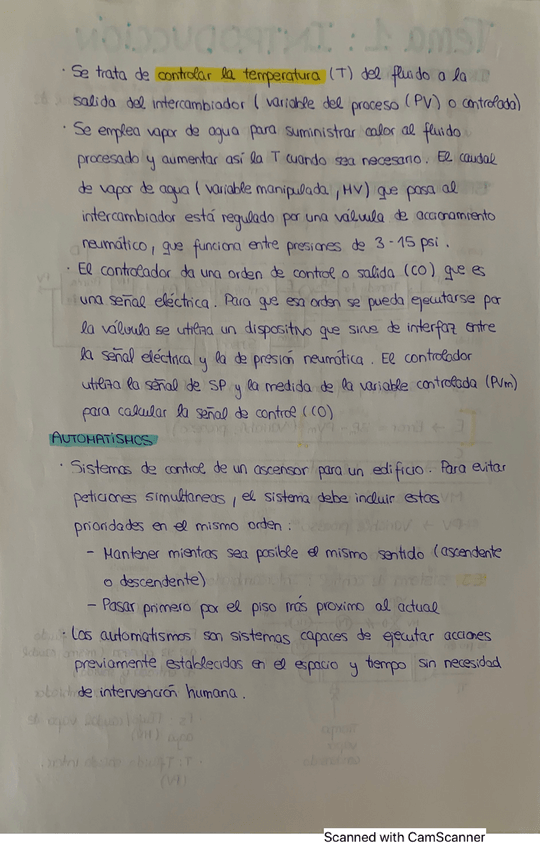 · Se trata de controlar la temperatura (T) del fluido a la
salida del intercambiador ( variable del proceso (PV) o controlada)
· Se emplea vapor de agua para suministrar calor al fluido
procesado y aumentar así la T cuando sea necesario. El caudal
de vapor de agua ( variable manipulada, MV) que pasa al
intercambiador está regulado por una válvula de accionamiento
neumático, que funciona entre presiones de 3-15 psi.
· El controlador da una orden de control o salida (CO) que es
una señal eléctrica. Para que esa orden se pueda ejecutarse por
la válvula se utiliza un dispositivo que sirve de interfaz entre
la señal eléctrica y la de presión neumática. El controlador
utiliza la señal de SP y la medida de la variable controlada (PVm)
para calcular la señal de control (CO)
AUTOMATISMOS
· Sistemas de control de un ascensor para un edificio. Para evitar
peticiones simultaneas, el sistema debe incluir estas
prioridades en el mismo orden:
- Mantener mientras sea posible el mismo sentido (ascendente
o descendente)
- Pasar primero por el piso más proximo al actual
· Los automatismos son sistemas capaces de ejecutar acciones
previamente establecidas en el espacio y tiempo sin necesidad
de intervención humana.
Scanned with CamScanner